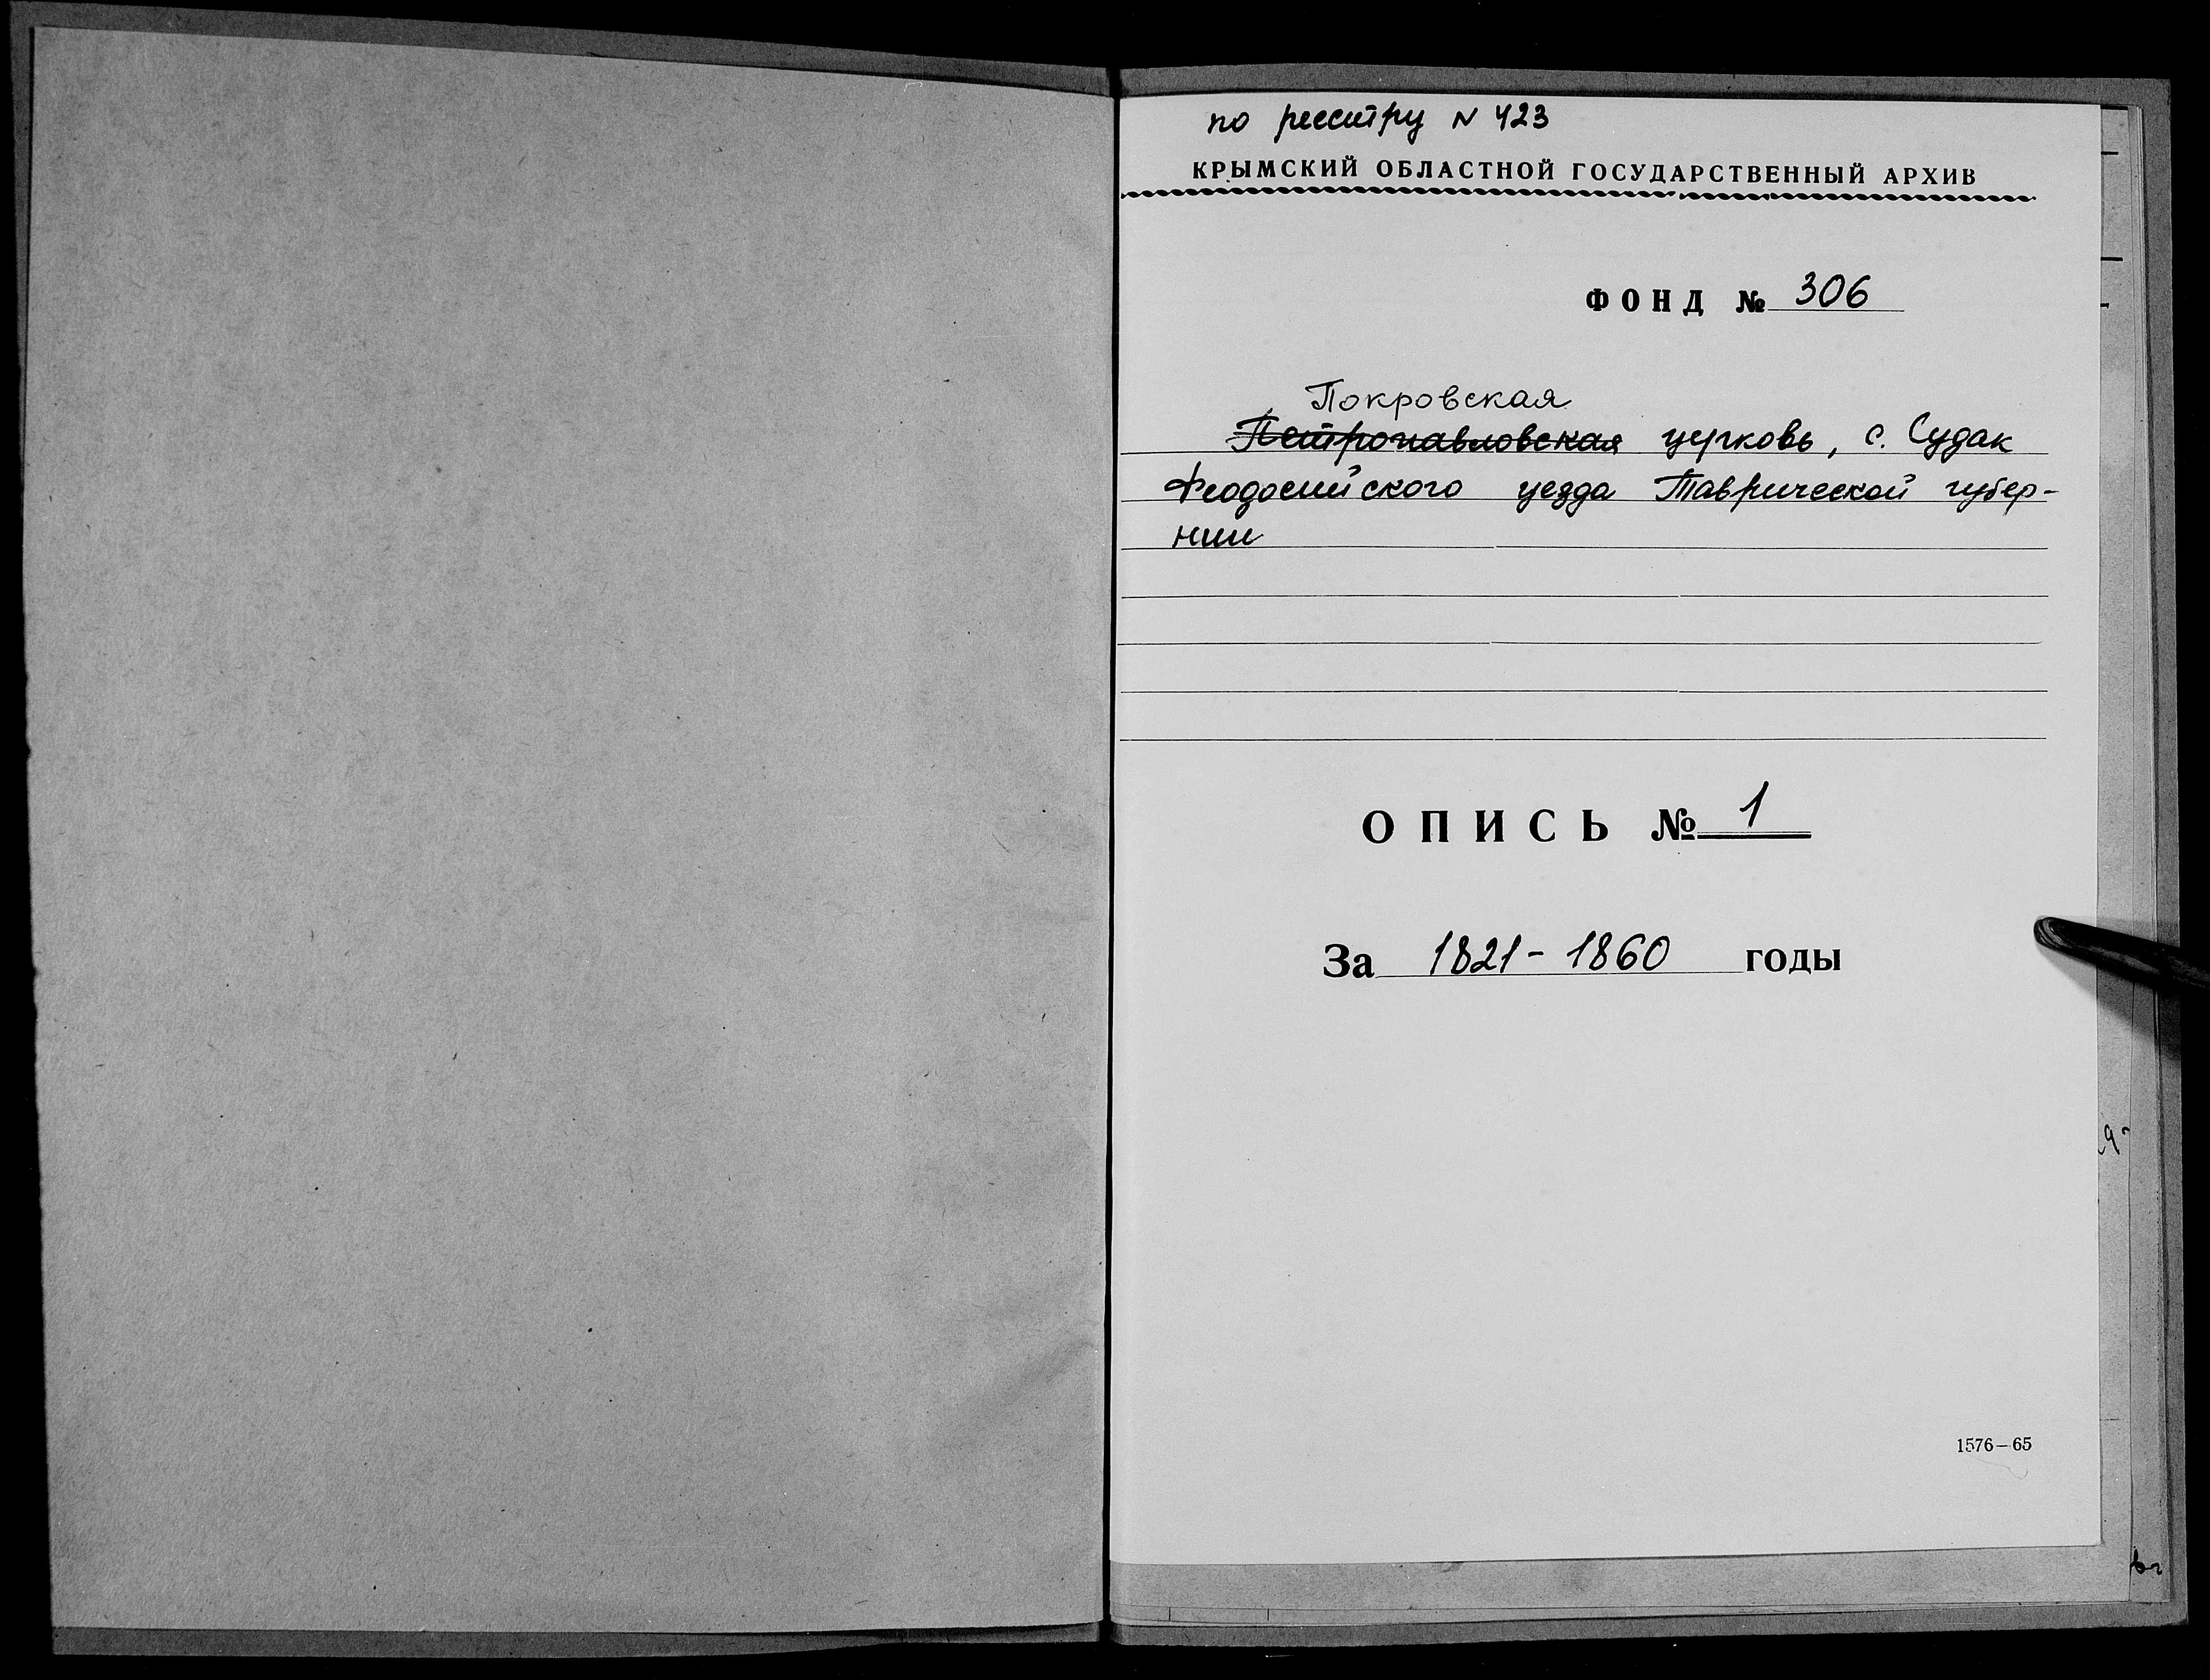 по реестру N 423
КРЫМСКИЙ ОБЛАСТНОЙ ГОСУДАРСТВЕННЫЙ АРХИВ
ФОНД № 306
Покровская
Петропавловская церковь, с. Судак
Феодосийского уезда Таврической губер-
нии
ОПИСЬ № 1
За 1821-1860 годы
1576—65